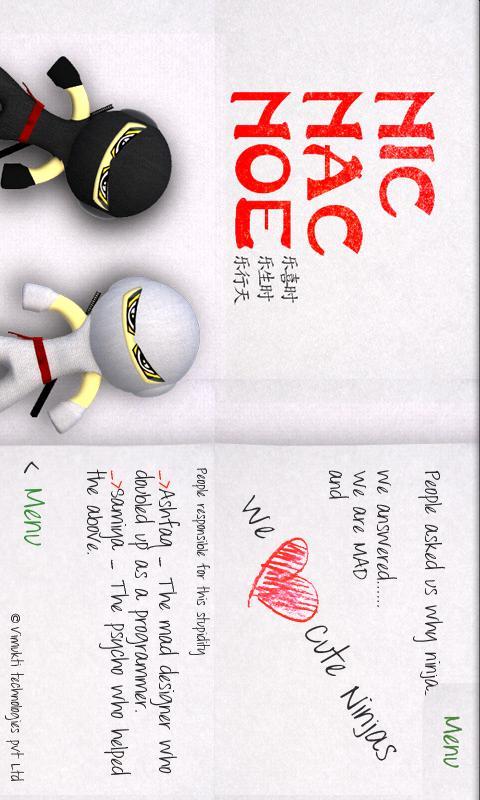 NIC
NAC
NOE
乐喜时
乐生时
乐行天
Menu
People asked us why ninja.
We answered......
We are MAD
and
We
cute Ninjas
People responsible for this stupidity
->Ashfaq - The mad designer who
doubled up as a programmer.
->Samiya - The psycho who helped
the above.
< Menu
© Vimukti technologies pvt Ltd